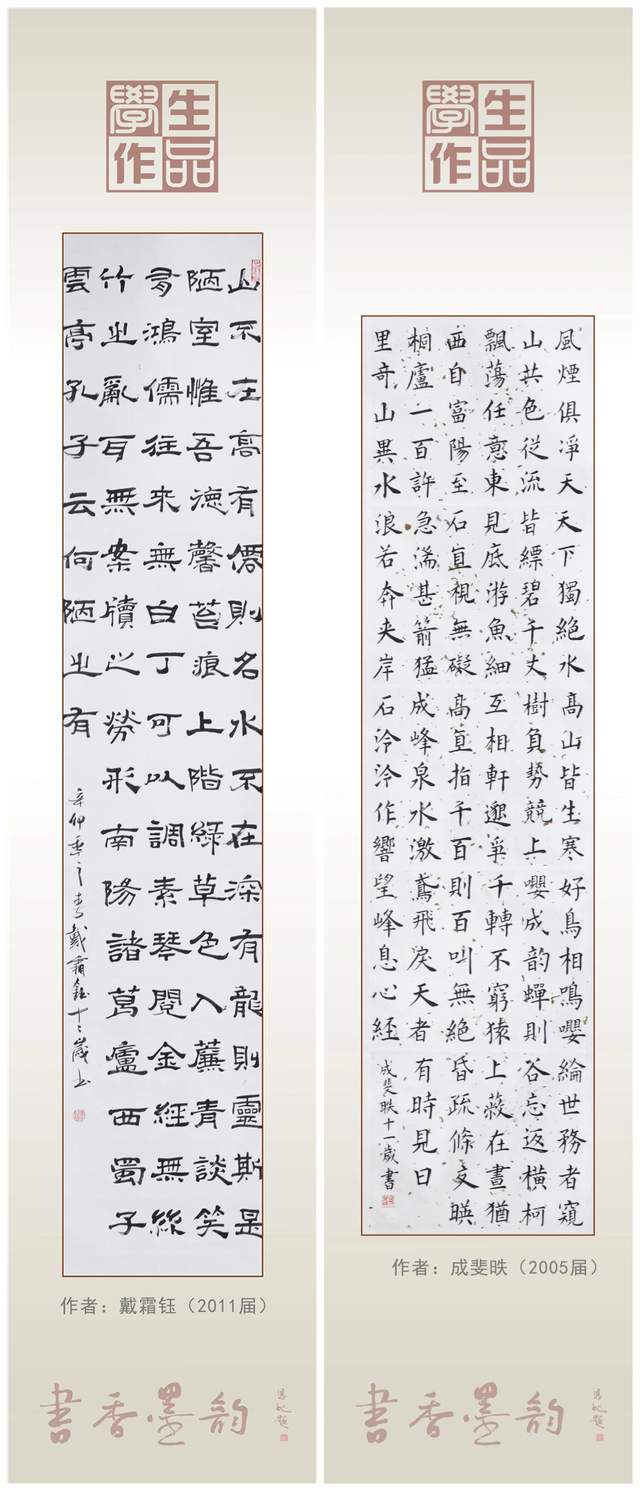 學生
作品
山不在高有僊則名水不在深有龍則靈斯是
陋室惟吾德馨苔痕上階綠草色入簾青談笑
有鴻儒往來無白丁可以調素琴閱金經無絲
竹之亂耳無案牘之勞形南陽諸葛廬西蜀子
雲亭孔子云何陋之有
辛卯季戴霜鈺十二歲書
作者：戴霜钰（2011届）
書香墨韵
學生
作品
風煙俱凈天
山共色從流
飄蕩任意東
西自富陽至
桐廬一百許
里奇山異水
天下獨絕水
皆縹碧千丈
見底游魚細
石直視無礙
急湍甚箭猛
浪若奔夾岸
高山皆生寒
樹負勢競上
互相軒邈爭
高直指千百
成峰泉水激
石泠泠作響
好鳥相鳴嚶
嚶成韵蟬則
千轉不窮猿
則百叫無絕
鳶飛戾天者
望峰息心經
綸世務者窺
谷忘返橫柯
上蔽在晝猶
昏疏條交映
有時見日
成斐昳十一歲書
作者：成斐昳（2005届）
書香墨韵